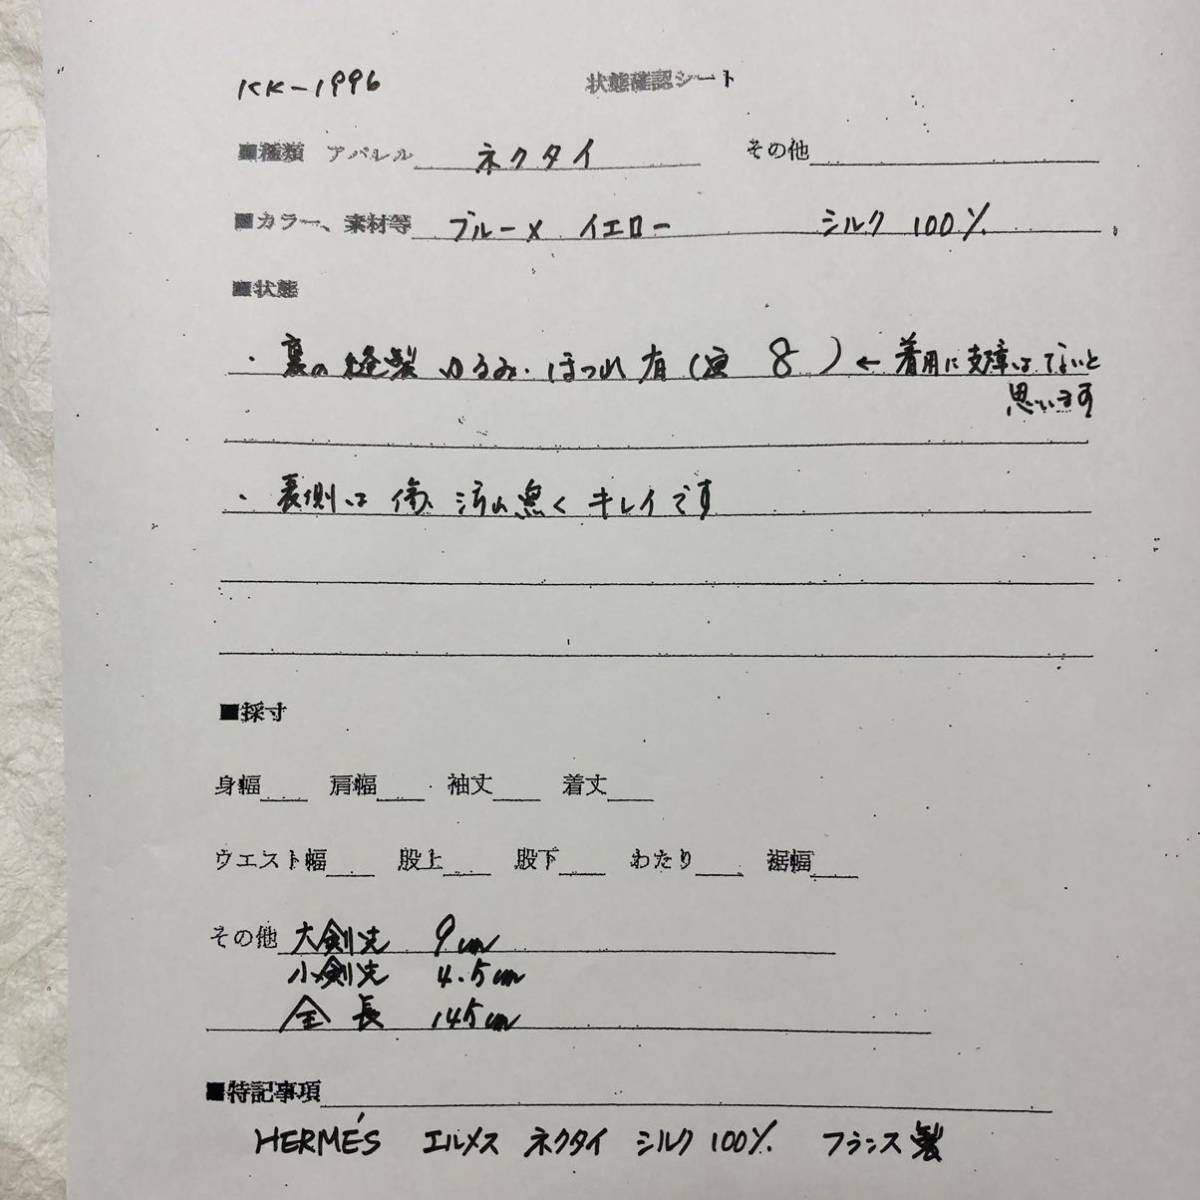 KK-1996 状態確認シート
■種類 アパレル ネクタイ その他
■カラー、素材等 ブルー × イエロー シルク 100%
■状態
・裏の縫製 ゆるみ・ほつれ有 (写 8 ) ← 着用に支障はないと
思います
・表側は 傷、汚れ無く キレイです
■採寸
身幅 肩幅 袖丈 着丈
ウエスト幅 股上 股下 わたり 裾幅
その他 大剣先 9cm
小剣先 4.5cm
全長 145cm
■特記事項
HERMÉS エルメス ネクタイ シルク 100% フランス製